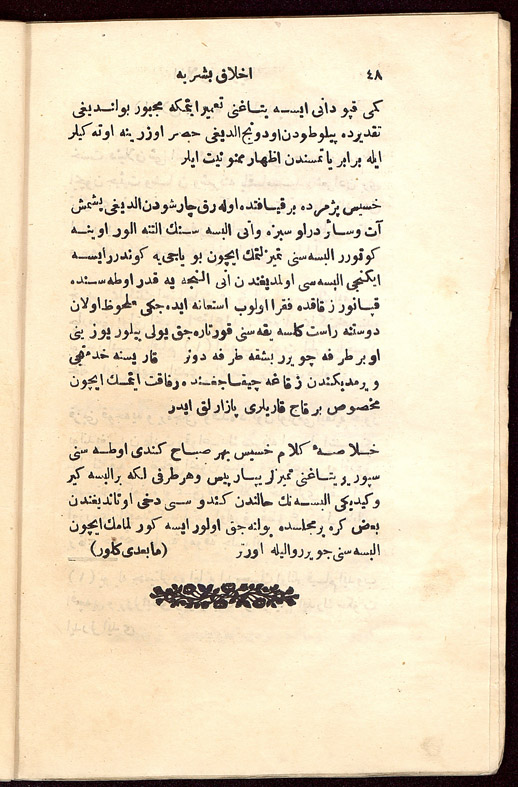 ٤٨ اخلاق بشريه
كى قپودانى ايسه يتاغنى تعمير ايتمكه مجبور بولنديغى
تقديرده پيلوطودن اودونج الديغى حصر اوزرينه اوته كيلر
ايله برابر ياتمسندن اظهار ممنونيت ايلر
خسيس پژمرده بر قيافتده اوله رق چارشودن الديغى يشمش
آت وسائر درلو سبزه واتى البسه سنك التنه الور اوينه
كوتورر البسه سنى تميزلتمك ايچون بوياجى يه كوندررايسه
ايكنجى البسه سى اولمديغندن انى النجيه يه قدر اوطه سنده
قپانور زقاقده فقرا اولوب استعانه ايده جكى ملحوظ اولان
دوستنه راست كلسه يقه سنى قورتاره جق يولى پيلور يوزينى
اوبر طرفه چويرر بشقه طرفه دونر قاريسنه خدمتجى
ويرمديكندن زقاغه چيقاجغنده رفاقت ايتمك ايچون
مخصوص بر قاچ قاريلرى پازارلق ايدر
خلاصه كلام خسيس بهر صباح كندى اوطه سنى
سپورر يتاغنى تميزلر يپار يتس وهر طرفى لكه بر البسه كير
وكيديكى البسه نك حالندن كندوسى دخى اوتانديغندن
بعض كره بر مجلسده بولنه جق اولور ايسه كورلمامك ايچون
البسه سنى چويرر واليله اورتر (مابعدى كلور)